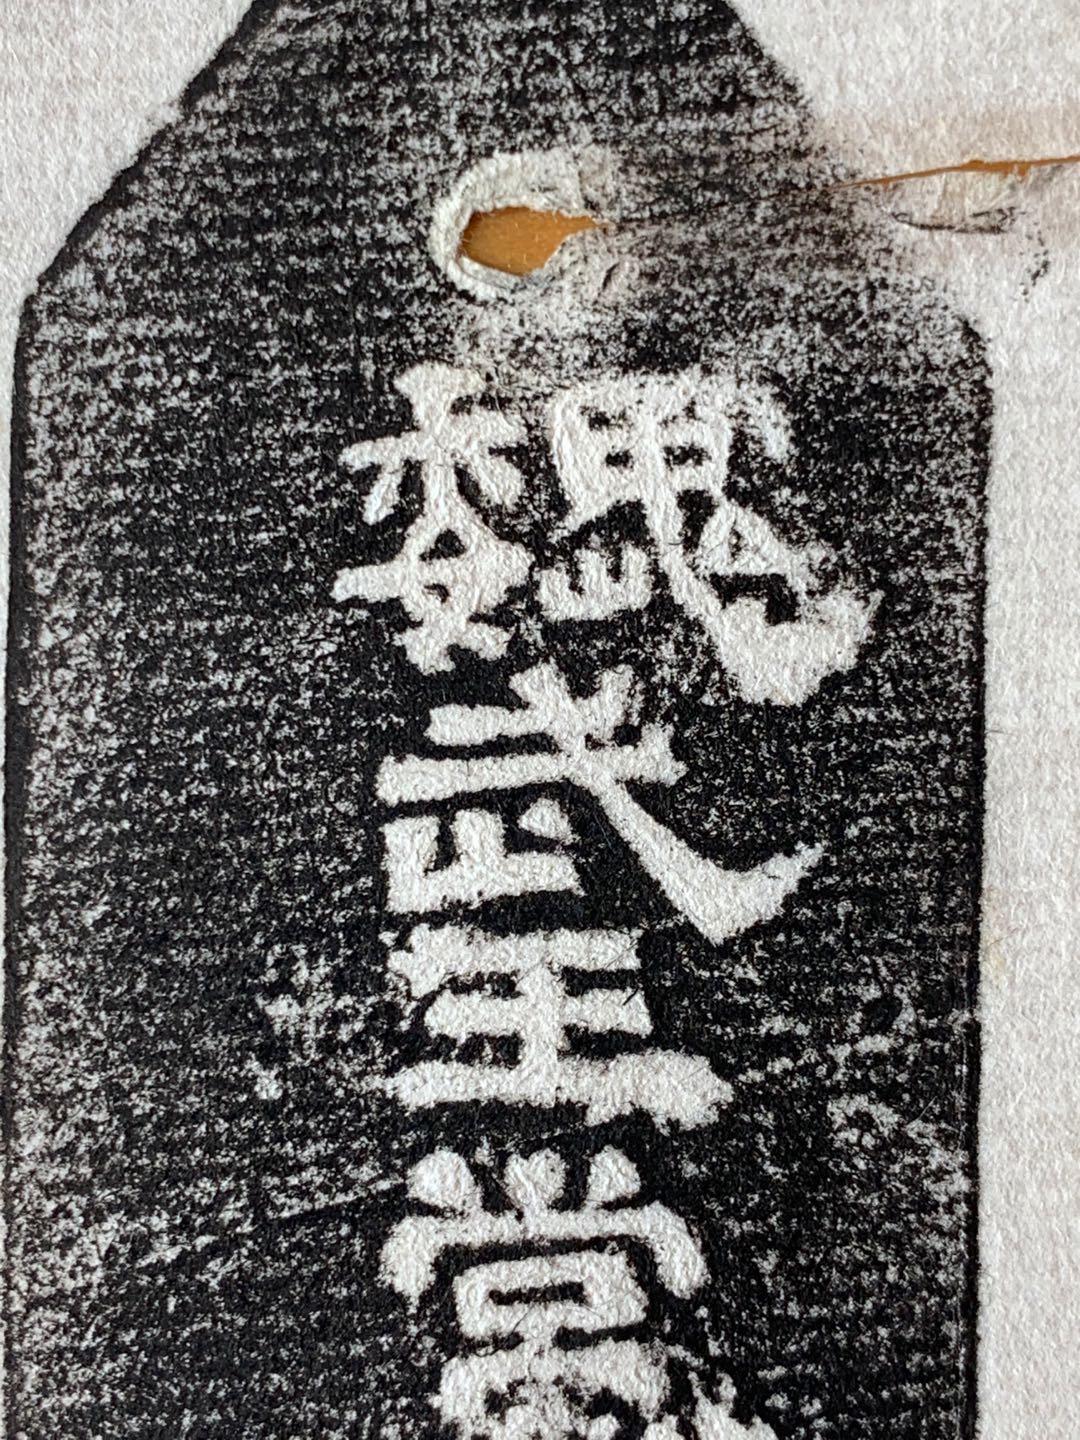 魏武王常